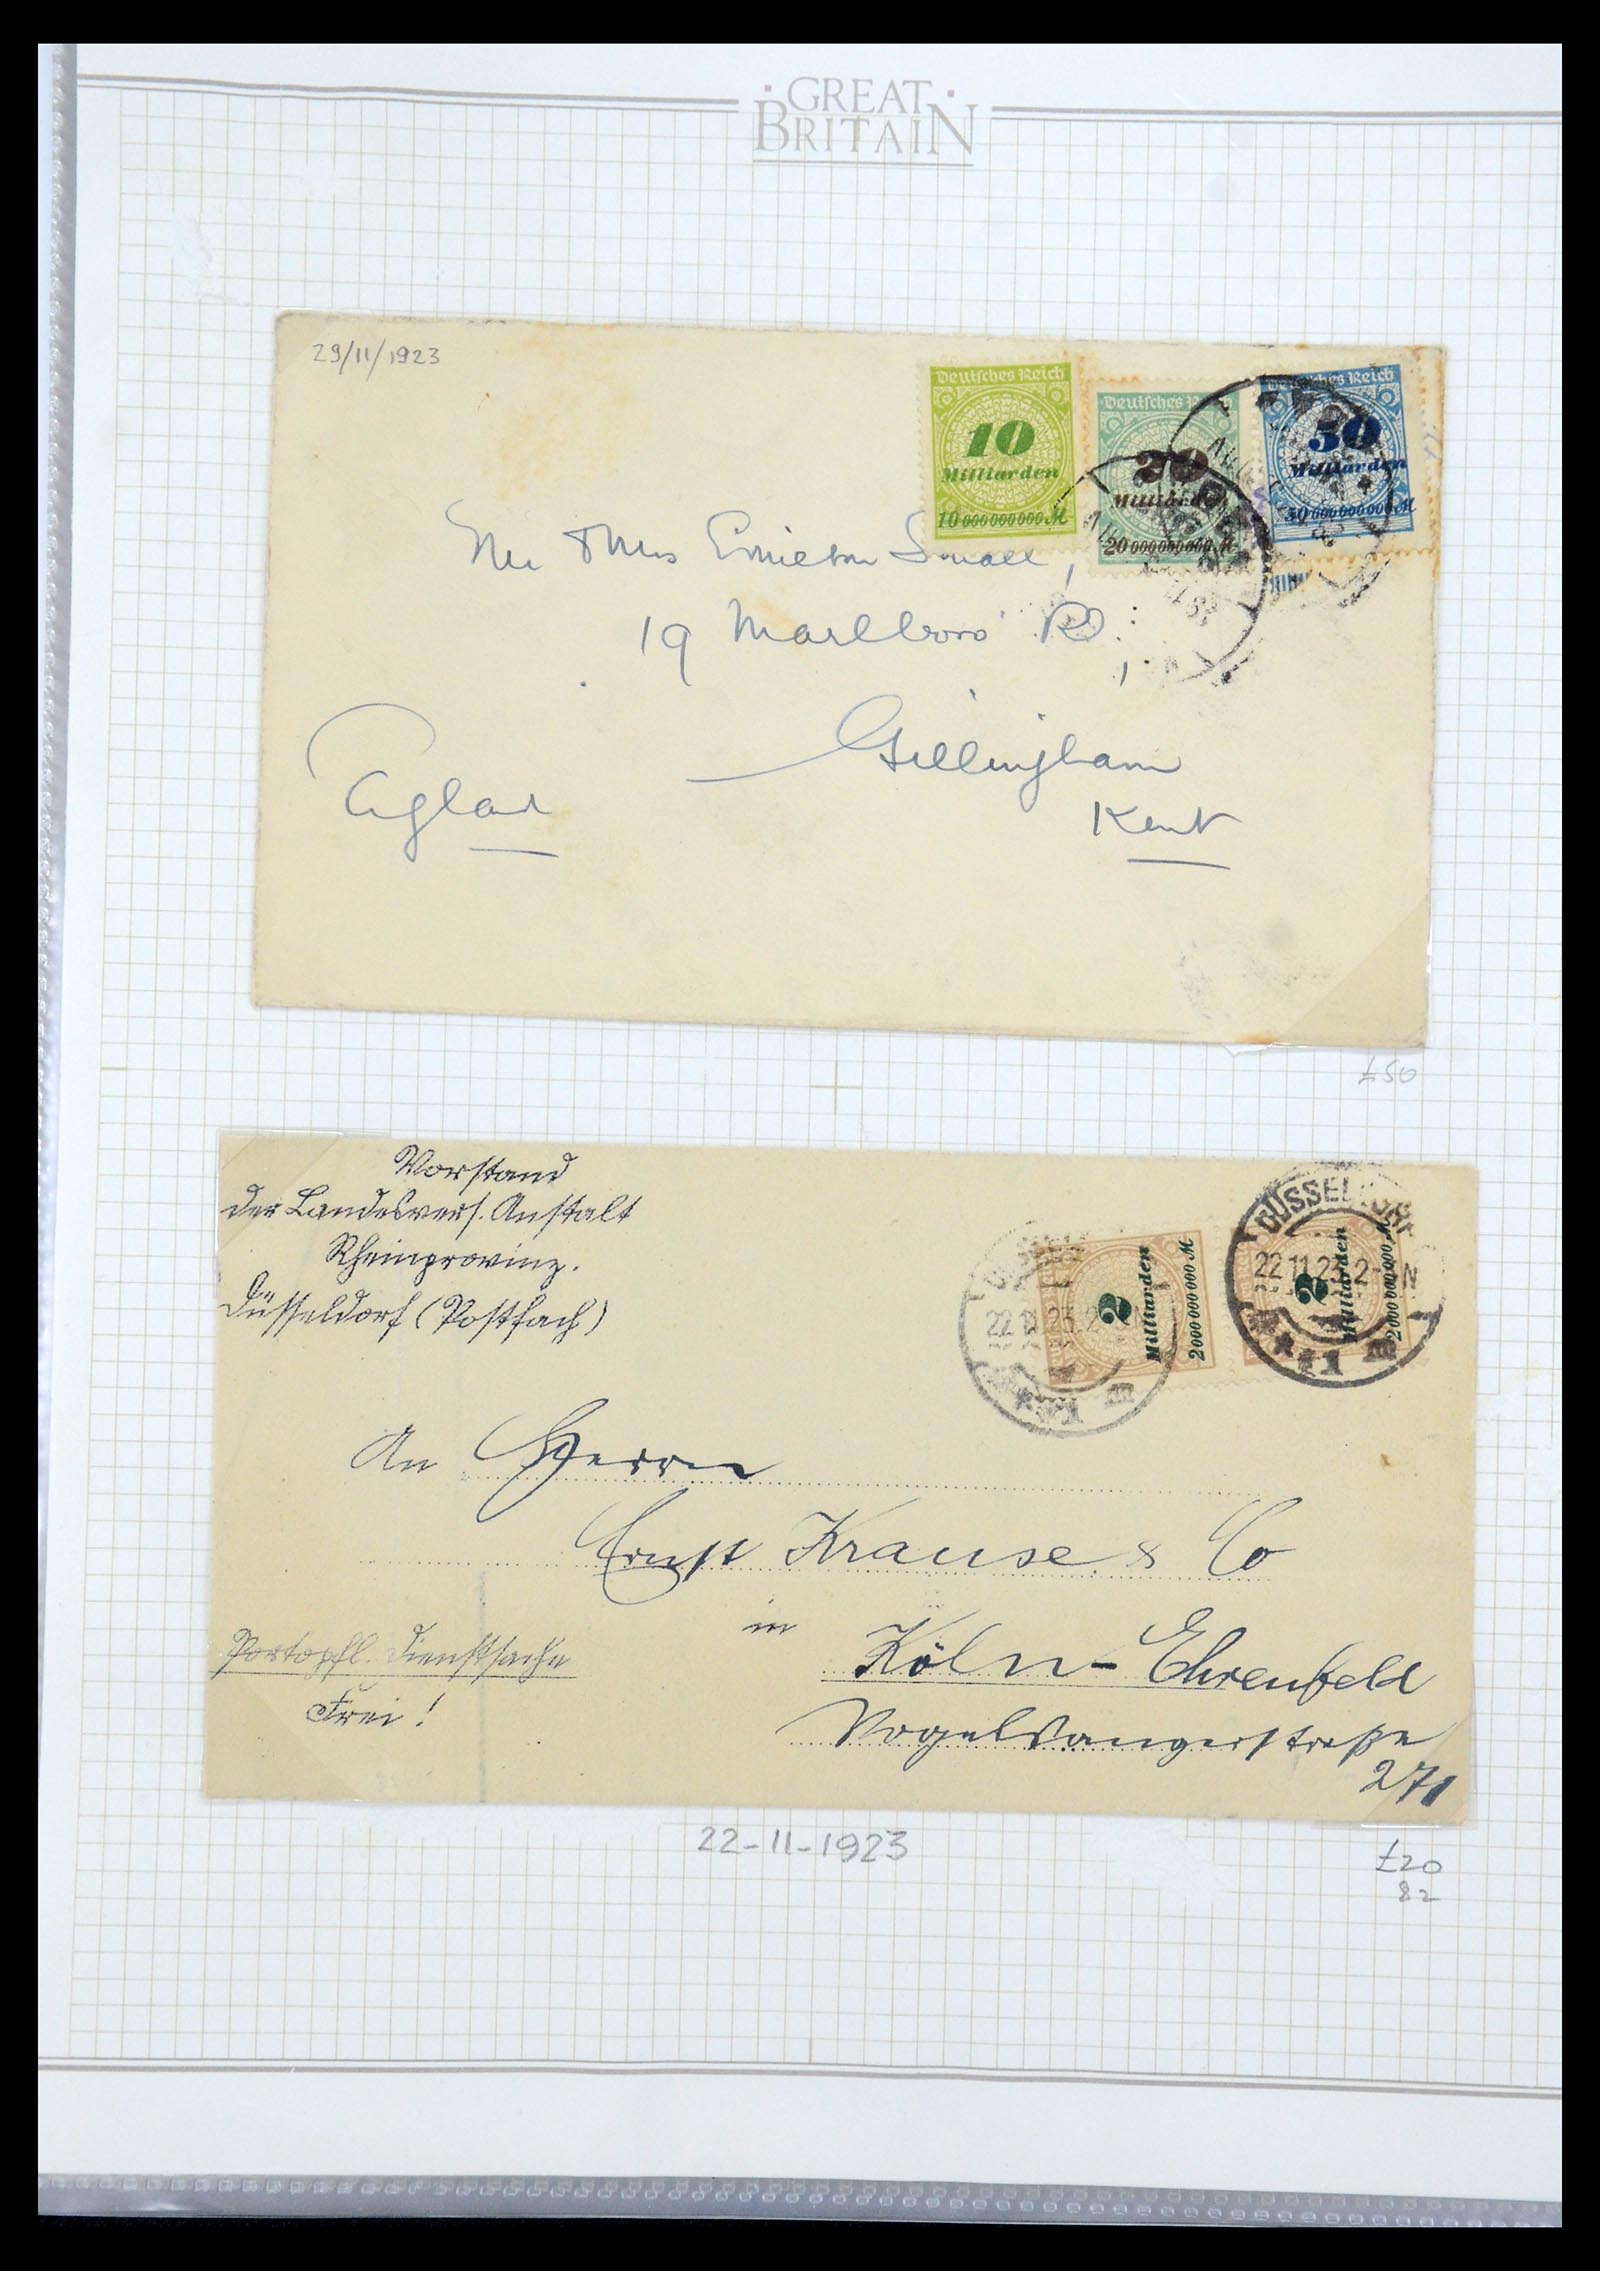 GREAT
BRITAIN
29/11/1923
Deutsches Reich
10
Milliarden
10 000 000 000 M
Deutsches Reich
20
Milliarden
20 000 000 000 M
Deutsches Reich
50
Milliarden
50 000 000 000 M
Mr & Mrs Small,
19 Marlboro' Rd.,
Gillingham
Kent
England
£50
Vorstand
der Landesvers. Anstalt
Rheinprovinz.
Düsseldorf (Postfach)
2
Milliarden
2 000 000 000 M
2
Milliarden
2 000 000 000 M
22.11.23.2-
DÜSSELDORF
22.11.23.2-3N
* 11 m
An Herrn
Ernst Krause & Co
in
Köln-Ehrenfeld
Vogelsangerstraße
271
Portopfl. Dienstsache
Frei!
22-11-1923
£20
82